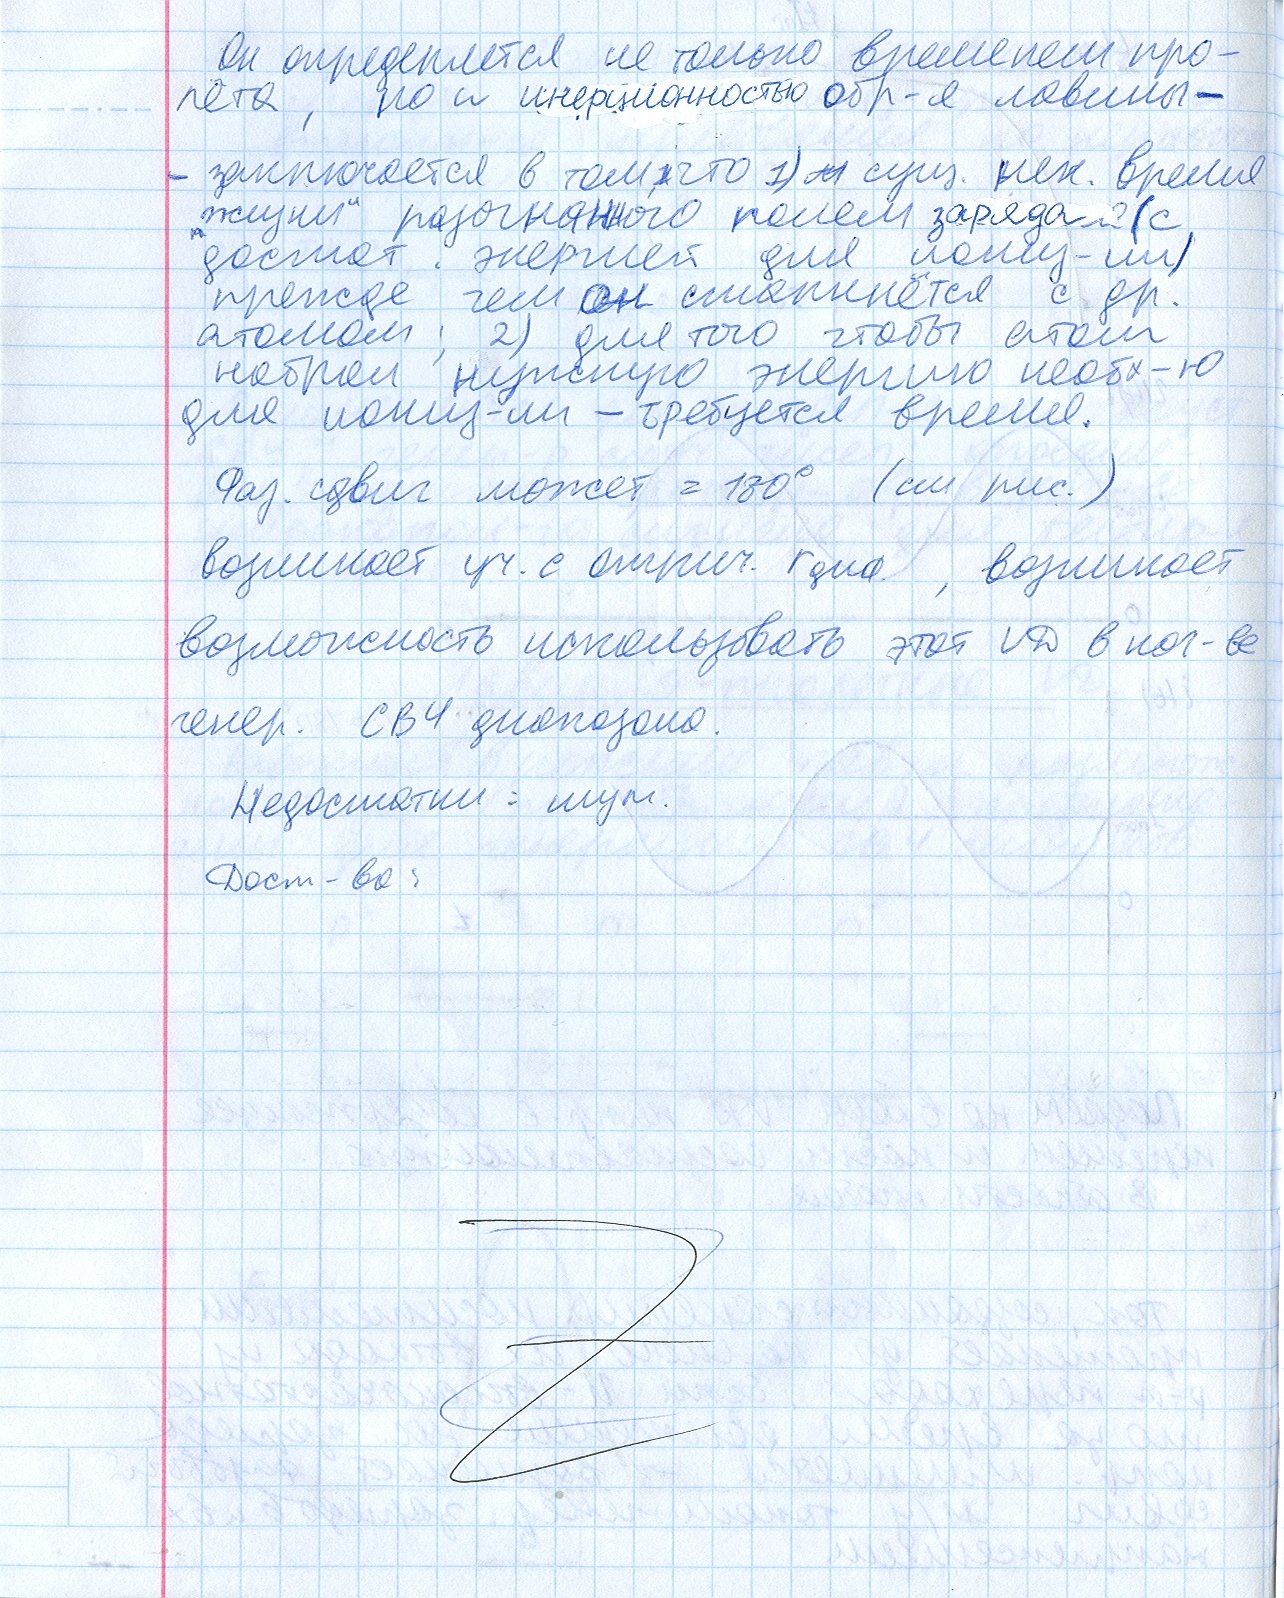 Он определяется не только временем про-
лёта, но и инерционностью обр-я лавины-
- заключается в том, что 1) сущ. нек. время
"жизни" разогнанного полем заряда (с
достат. энергией для иониз-ии)
прежде чем он столкнётся с др.
атомом; 2) для того чтобы атом
набрал нужную энергию необх-ю
для иониз-ии - требуется время.
Фаз. сдвиг может = 180° (см рис.)
возникает уч. с отриц. rдиф. , возникает
возможность использовать этот VD в кач-ве
генер. СВЧ диапазона.
Недостатки: шум.
Дост-ва: